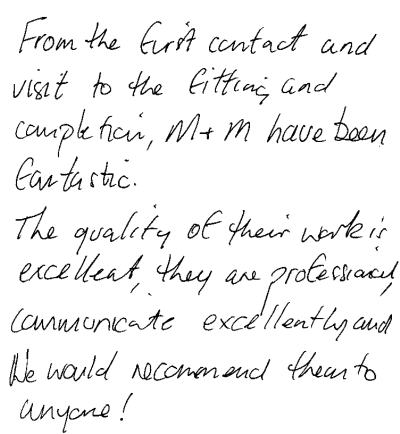 From the first contact and
visit to the fitting and
completion, M+M have been
fantastic.
The quality of their work is
excellent, they are professional,
communicate excellently and
We would recommend them to
anyone!